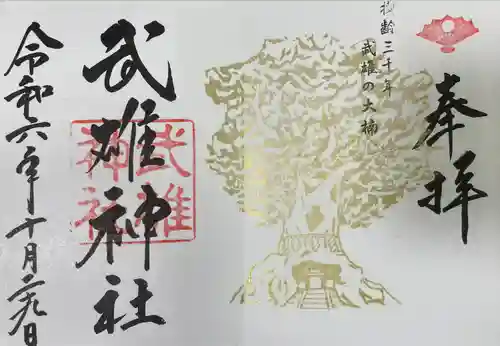 奉拝
樹齢三千年
武雄の大楠
武雄神社
武雄神社
令和六年十月二九日